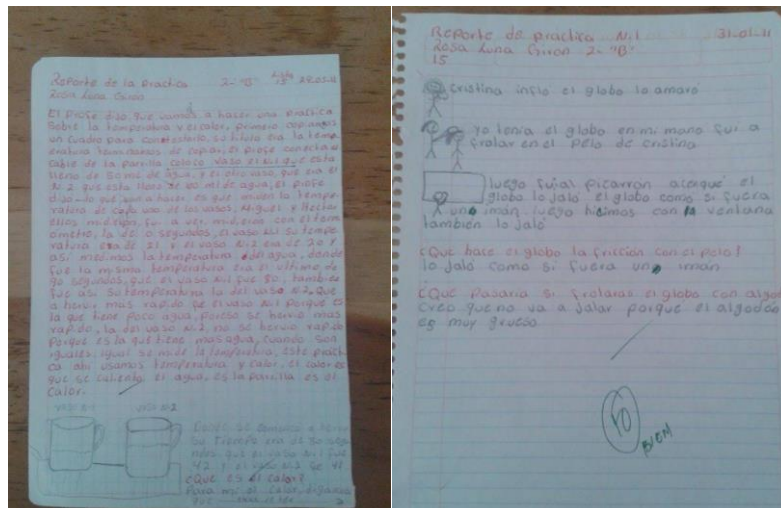 Reporte de la practica 2- "B"
Rosa Luna Giron
El profe dijo que vamos a hacer una practica
sobre la temperatura y el calor, primero copiamos
un cuadro para contestarlo, su titulo era la tempe
eratura terminamos de copiar, el profe conecta el
cable de la parrilla coloco vaso el N.1 que esta
lleno de 50 ml de agua, y el otro vaso, que era el
N.2 que esta lleno de ml de agua, el profe
dijo lo que van a hacer es que miden la tempe
ratura de cada uno de los vasos, Miguel y Hector
ellos midieron, fui a ver, midieron con el term
ometro, la de 0 segundos, el vaso N.1 su tempe
ratura era de 21 y el vaso N.2 era de 20 y
asi medimos la temperatura del agua, donde
fue la misma temperatura era el ultimo de
90 segundos, que el vaso N.1 fue 80, tambien
fue asi su temperatura la del vaso N.2, que
a hervir mas rapido fue el vaso N.1 porque es
la que tiene poco agua, por eso se hervio mas
rapido, la del vaso N.2, no se hervio rapido
porque es la que tiene mas agua, cuando son
iguales, igual se mide la temperatura, este practi
ca ahi usamos temperatura y calor, el calor es
que se calienta el agua, es la parrilla es el
calor.
vaso N.1 vaso N.2
Donde se empezo a hervir
su tiempo era de 30 segu
ndos, que el vaso N.1 fue
42 y el vaso N.2 de 41
¿Que es el calor?
Para mi el calor
Reporte de practica N.1 31-01-11
Rosa Luna Giron 2- "B"
15
Cristina inflo el globo lo amaro
yo tenia el globo en mi mano fui a
frotar en el pelo de cristina
luego fui al picarron acerqué el
globo lo jaló el globo como si fuera
un imán luego hicimos con la ventana
también lo jaló
¿Que hace el globo la fricción con el pelo?
lo jaló como si fuera un imán
¿Que pasaria si frotaras el globo con algod
creo que no va a jalar porque el algodón
es muy grueso
10
BIEN